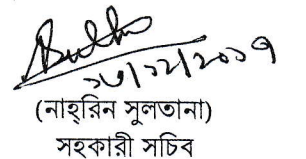 ১৩/১২/২০১৭
(নাহ্‌রিন সুলতানা)
সহকারী সচিব